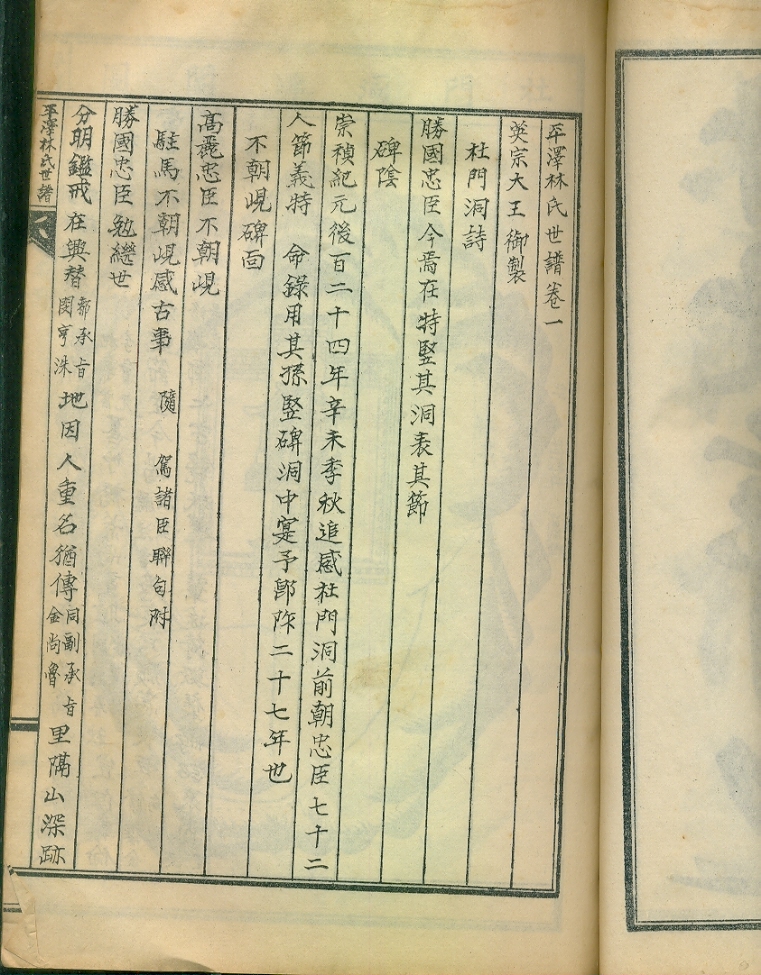 平澤林氏世譜卷一
英宗大王御製
杜門洞詩
勝國忠臣今焉在特竪其洞表其節
碑陰
崇禎紀元後百二十四年辛未季秋追感杜門洞前朝忠臣七十二
人節義特 命錄用其孫竪碑洞中寔予卽阼二十七年也
不朝峴碑面
高麗忠臣不朝峴
駐馬不朝峴感古事 隨 駕諸臣聯句附
勝國忠臣勉繼世
分明鑑戒在興替都承旨閔亨洙地因人重名猶傳同副承旨金尚魯里隔山深跡
平澤林氏世譜